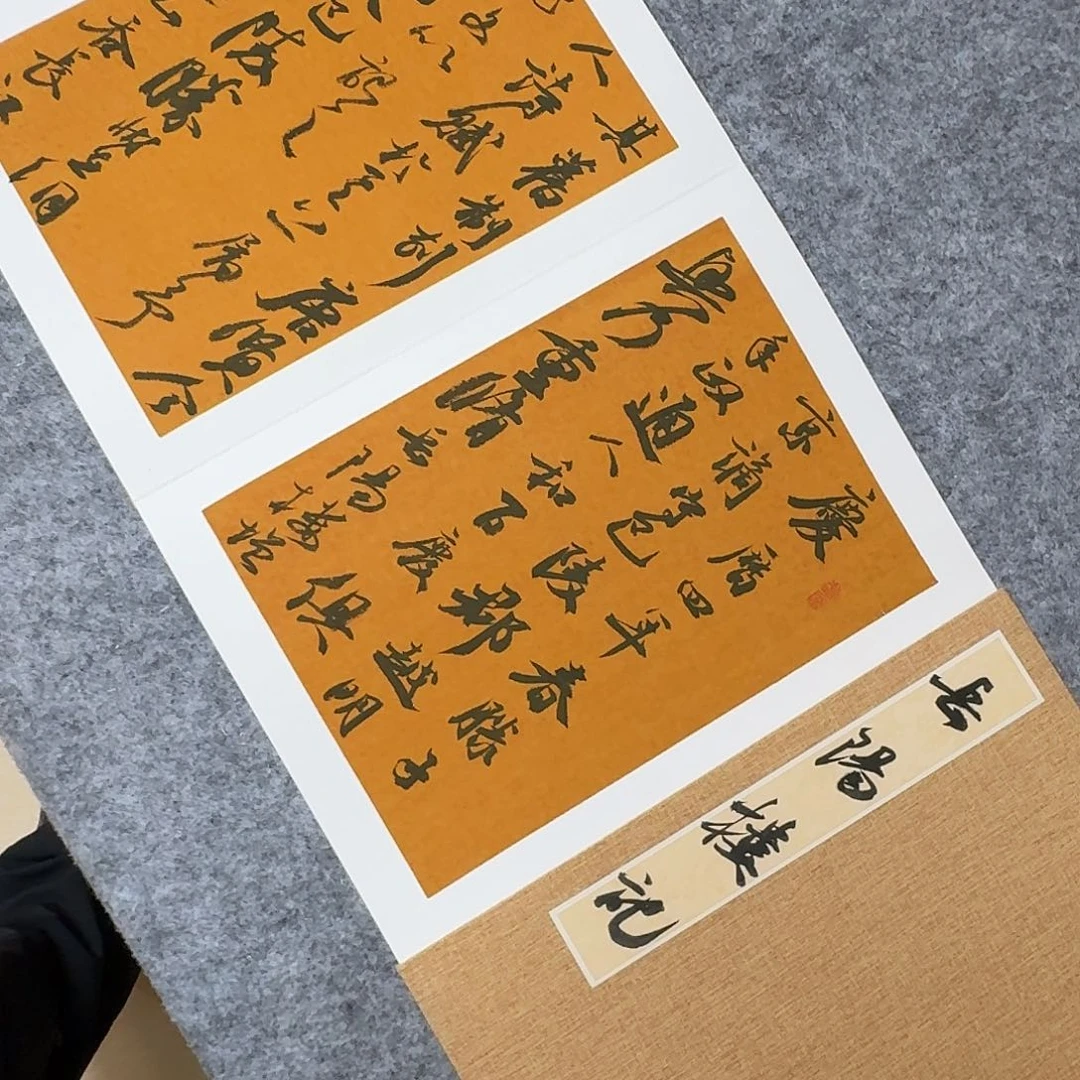 岳陽樓記
慶曆四年春滕子
京謫守巴陵郡越明
年政通人和百廢俱
興乃重修岳陽樓增
其舊制刻唐賢今
人詩賦於其上屬予
文以記之
巴陵勝狀在洞
山吞長江